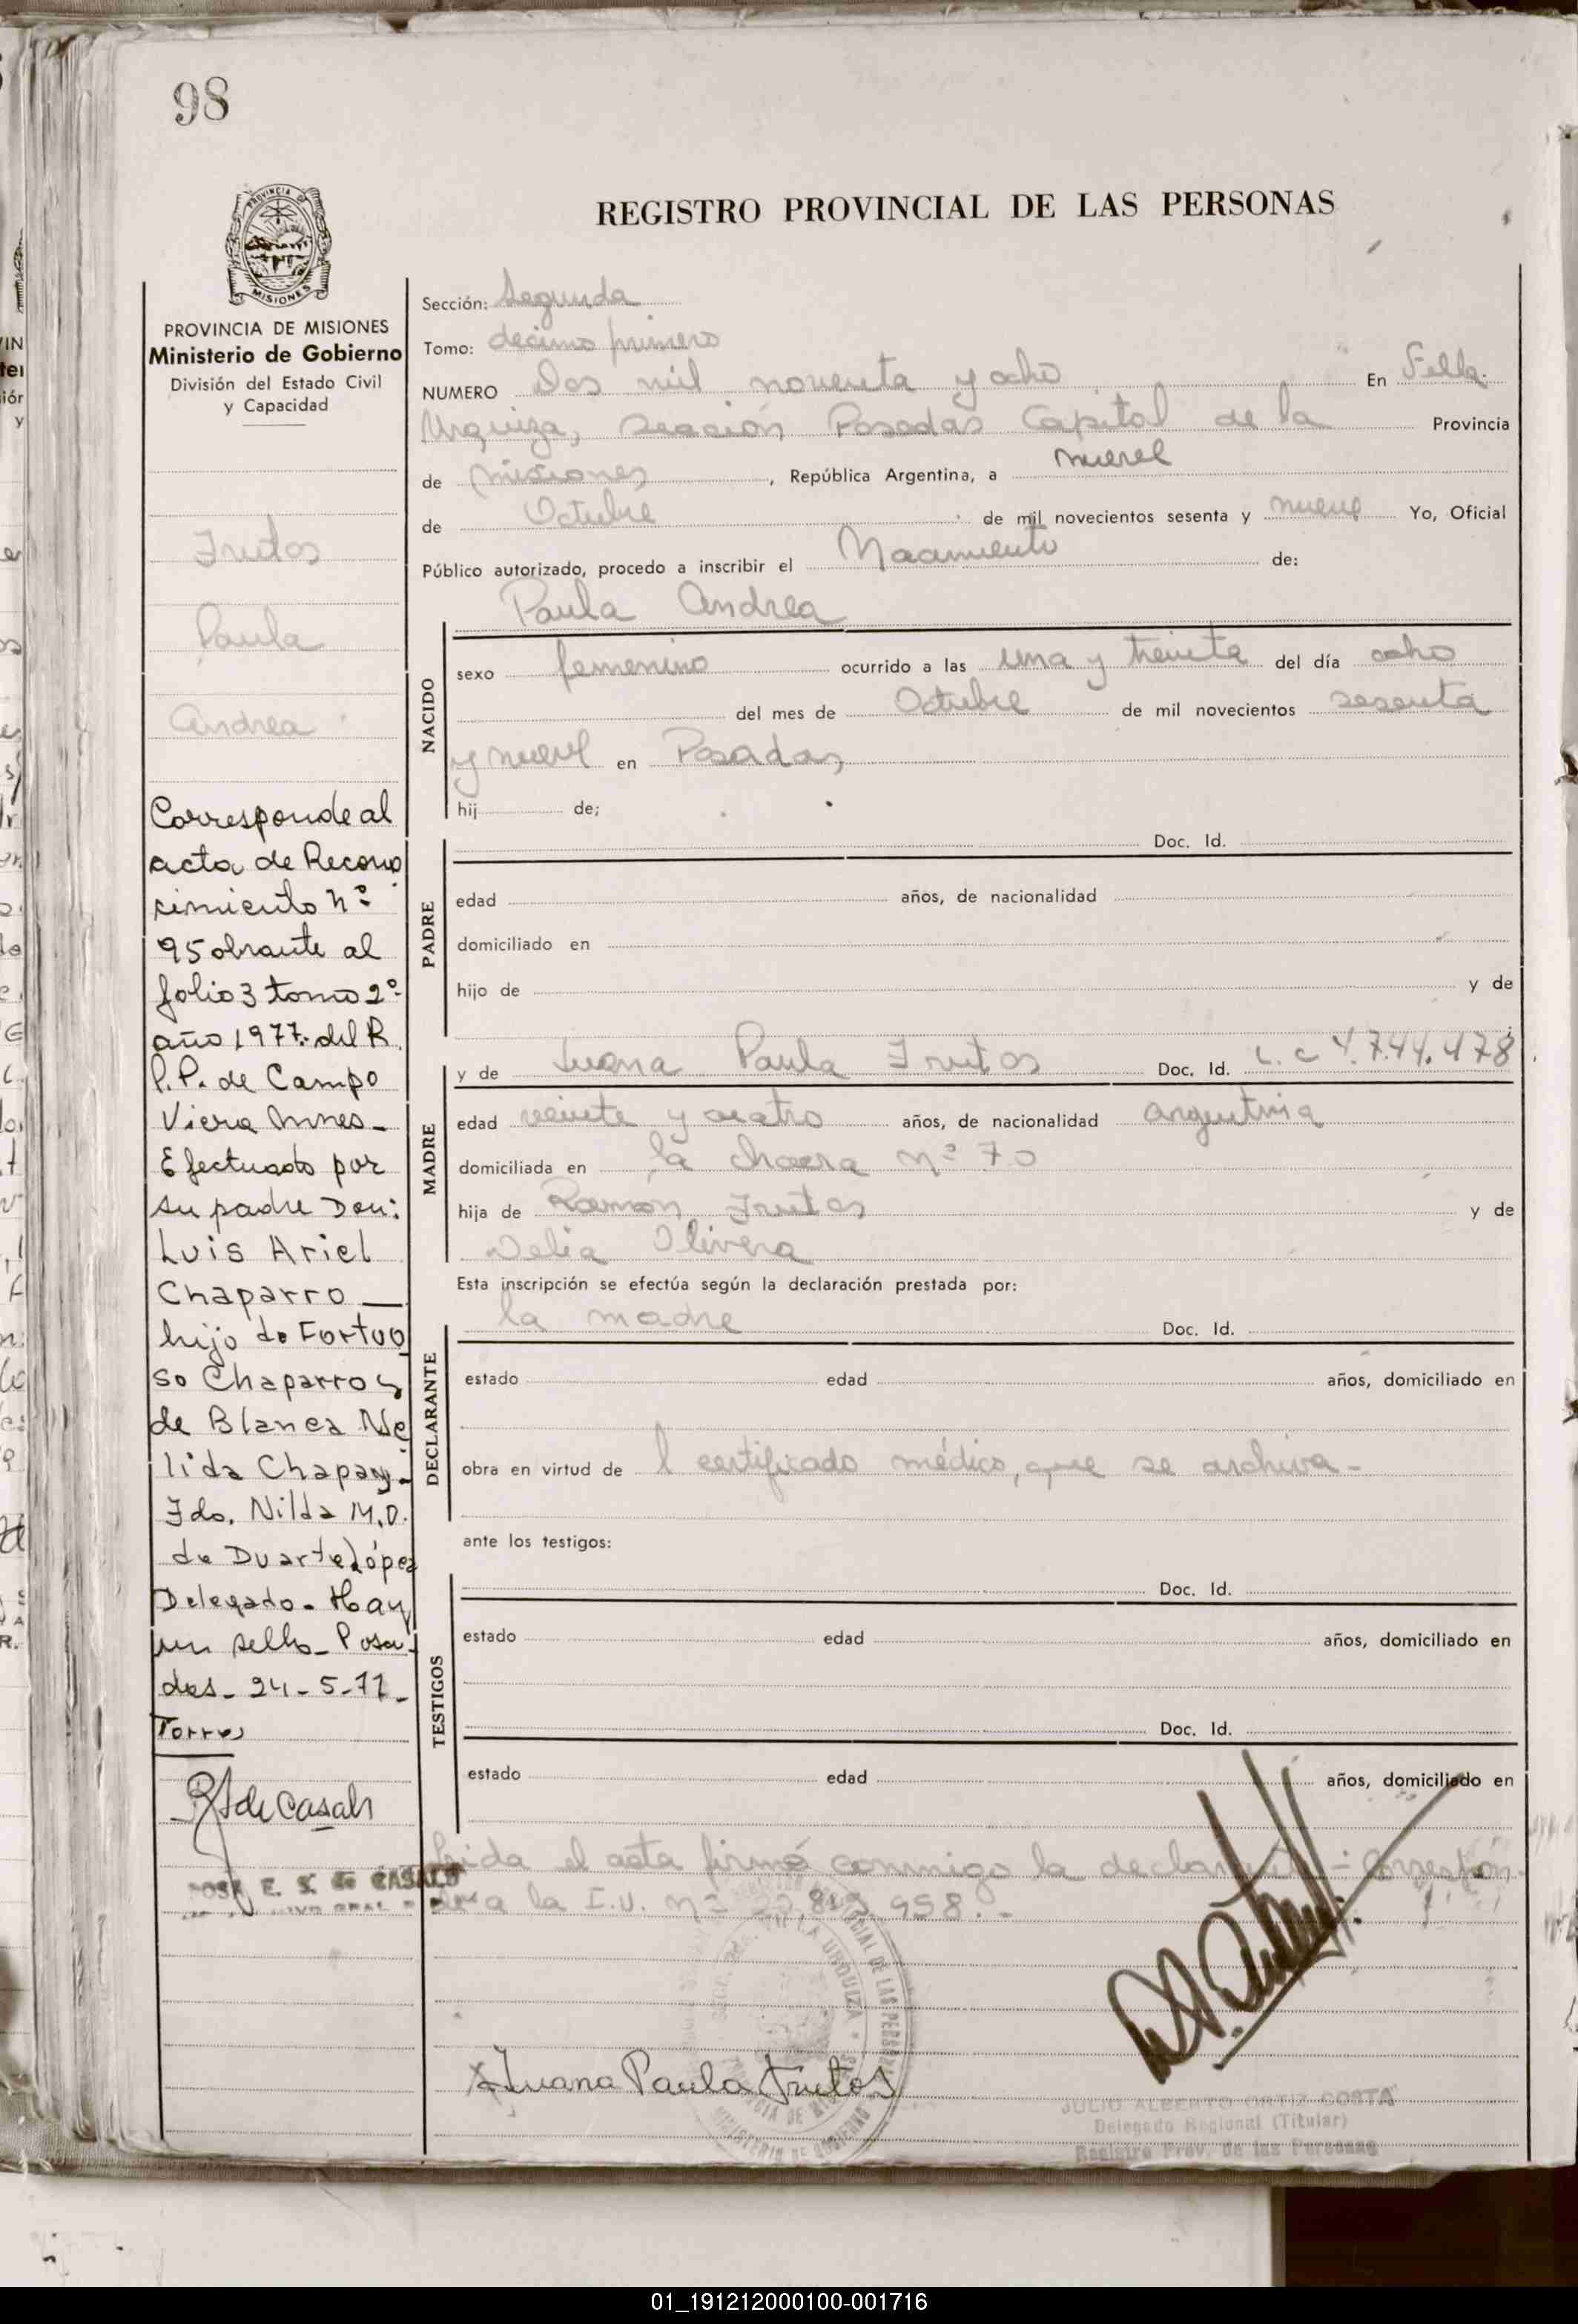 98
PROVINCIA DE
MISIONES
REGISTRO PROVINCIAL DE LAS PERSONAS
PROVINCIA DE MISIONES
Ministerio de Gobierno
División del Estado Civil
y Capacidad
Frutos
Paula
Andrea
Corresponde al
acta de Recono
cimiento Nº
95 obrante al
folio 3 tomo 2º
año 1977. del R.
P.P. de Campo
Viera Mnes -
Efectuado por
su padre Don:
Luis Ariel
Chaparro —
hijo de Fortuo
so Chaparro y
de Blanca Ne
lida
Fdo. Nilda M.D.
de Duarte López
Delegado - Hay
un sello - Posa-
das - 24 - 5 - 77 -
Torres
de Casals
Sección: Segunda
Tomo: decimo primero
NUMERO Dos mil noventa y ocho En Villa
Urquiza, sección Posadas Capital de la Provincia
de Misiones, República Argentina, a nueve
de Octubre de mil novecientos sesenta y nueve Yo, Oficial
Público autorizado, procedo a inscribir el Nacimiento de:
Paula Andrea
NACIDO
sexo femenino ocurrido a las una y treinta del día ocho
del mes de Octubre de mil novecientos sesenta
y nueve en Posadas
hij de;
Doc. Id.
PADRE
edad años, de nacionalidad
domiciliado en
hijo de y de
y de Juana Paula Frutos Doc. Id. L.C 4.744.478
MADRE
edad veinte y cuatro años, de nacionalidad argentina
domiciliada en la chacra nº 70
hija de Ramón Frutos y de
Delia Olivera
Esta inscripción se efectúa según la declaración prestada por:
la madre Doc. Id.
DECLARANTE
estado edad años, domiciliado en
obra en virtud de l certificado médico, que se archiva -
ante los testigos:
Doc. Id.
TESTIGOS
estado edad años, domiciliado en
Doc. Id.
estado edad años, domiciliado en
Leida el acta firmó conmigo la declarante - Correspon
de a la I.U. nº 958. -
Juana Paula Frutos
JULIO ALBERTO ORTIZ COSTA
Delegado Regional (Titular)
Registro Prov. de las Personas
01_191212000100-001716